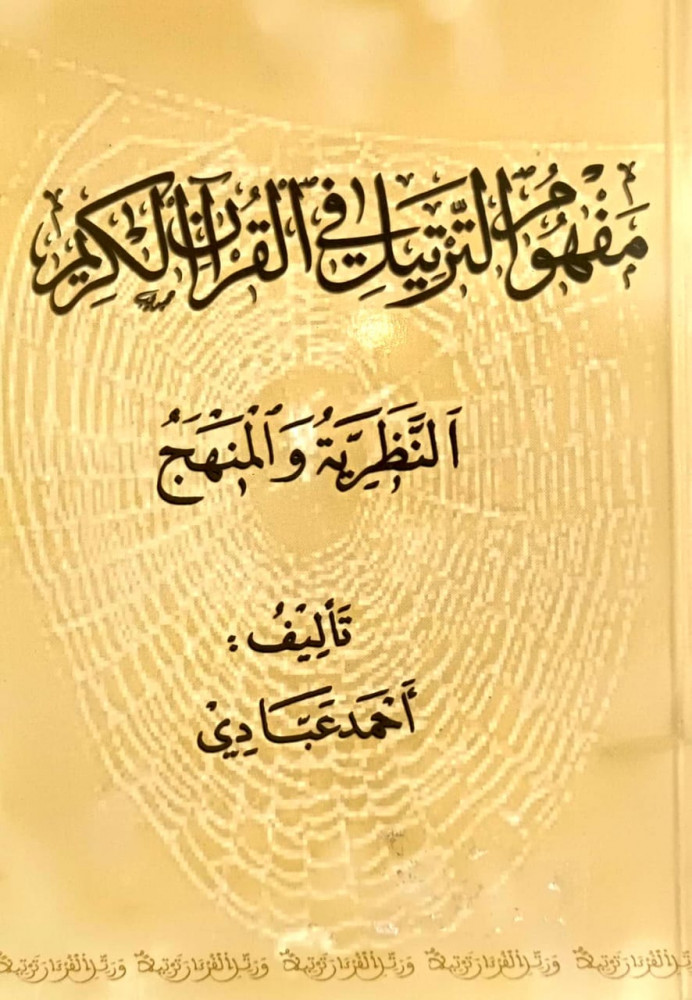 مَفْهُومُ التَّرْتِيلِ فِي الْقُرْآنِ الْكَرِيمِ
اَلنَّظَرِيَّةُ وَالْمَنْهَجُ
تَأْلِيفُ :
أَحْمَد عَبَّادِي
وَرَتِّلِ الْقُرْآنَ تَرْتِيلًا وَرَتِّلِ الْقُرْآنَ تَرْتِيلًا وَرَتِّلِ الْقُرْآنَ تَرْتِيلًا وَرَتِّلِ الْقُرْآنَ تَرْتِيلًا